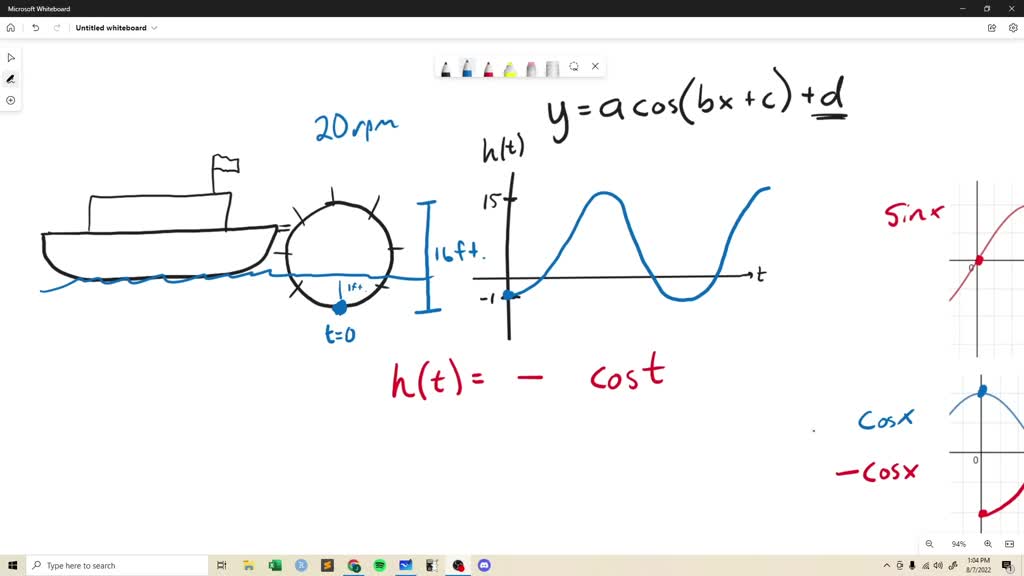 Microsoft Whiteboard
Untitled whiteboard
y = a cos(bx + c) + d
20 rpm
h(t)
15
-1
t
16ft.
1ft.
t=0
h(t) = - cos t
sin x
0
cos x
-cos x
0
94%
Type here to search
1:04 PM
8/7/2022